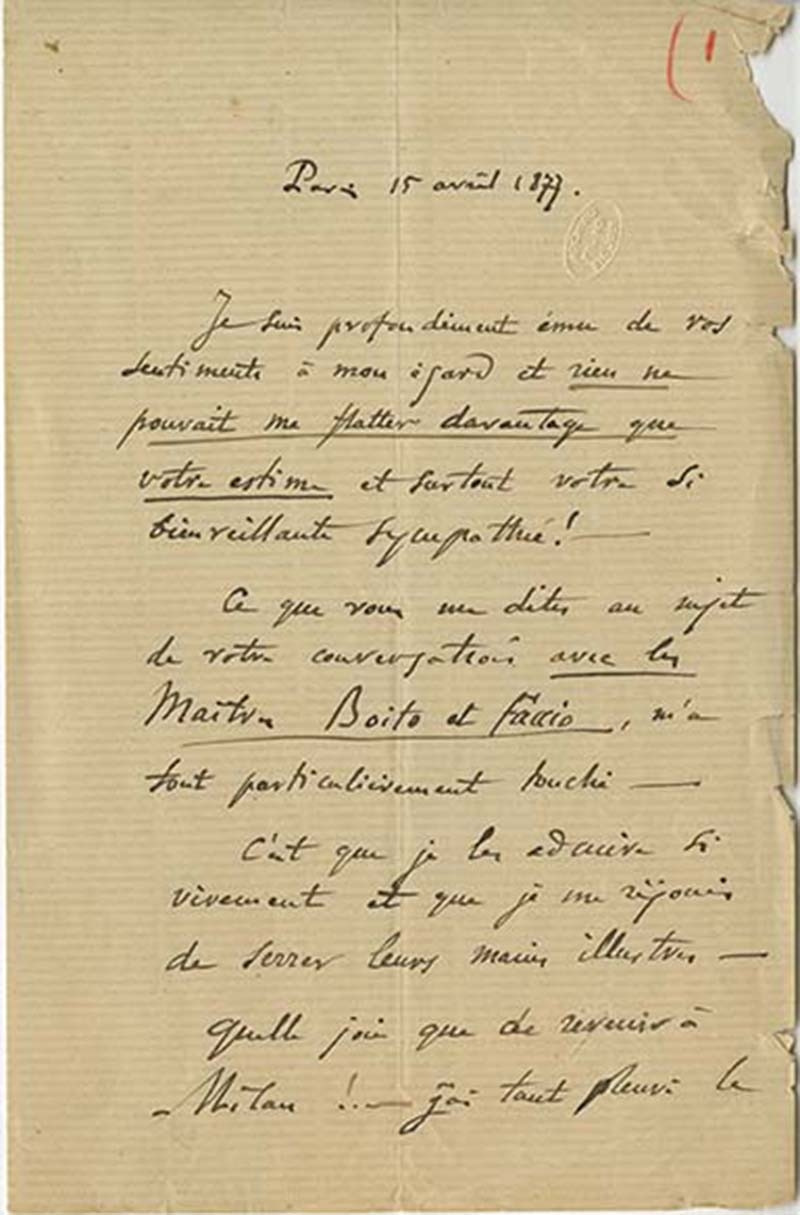 (1
Paris 15 avril 1877.
Je suis profondément ému de vos
sentiments à mon égard et rien ne
pouvait me flatter davantage que
votre estime et surtout votre si
bienveillante sympathie! —
Ce que vous me dites au sujet
de votre conversation avec les
Maîtres Boito et Faccio, m'a
tout particulièrement touché —
C'est que je les admire si
vivement et que je me réjouis
de serrer leurs mains illustres —
Quelle joie que de revenir à
Milan !.— J'ai tant pleuré le